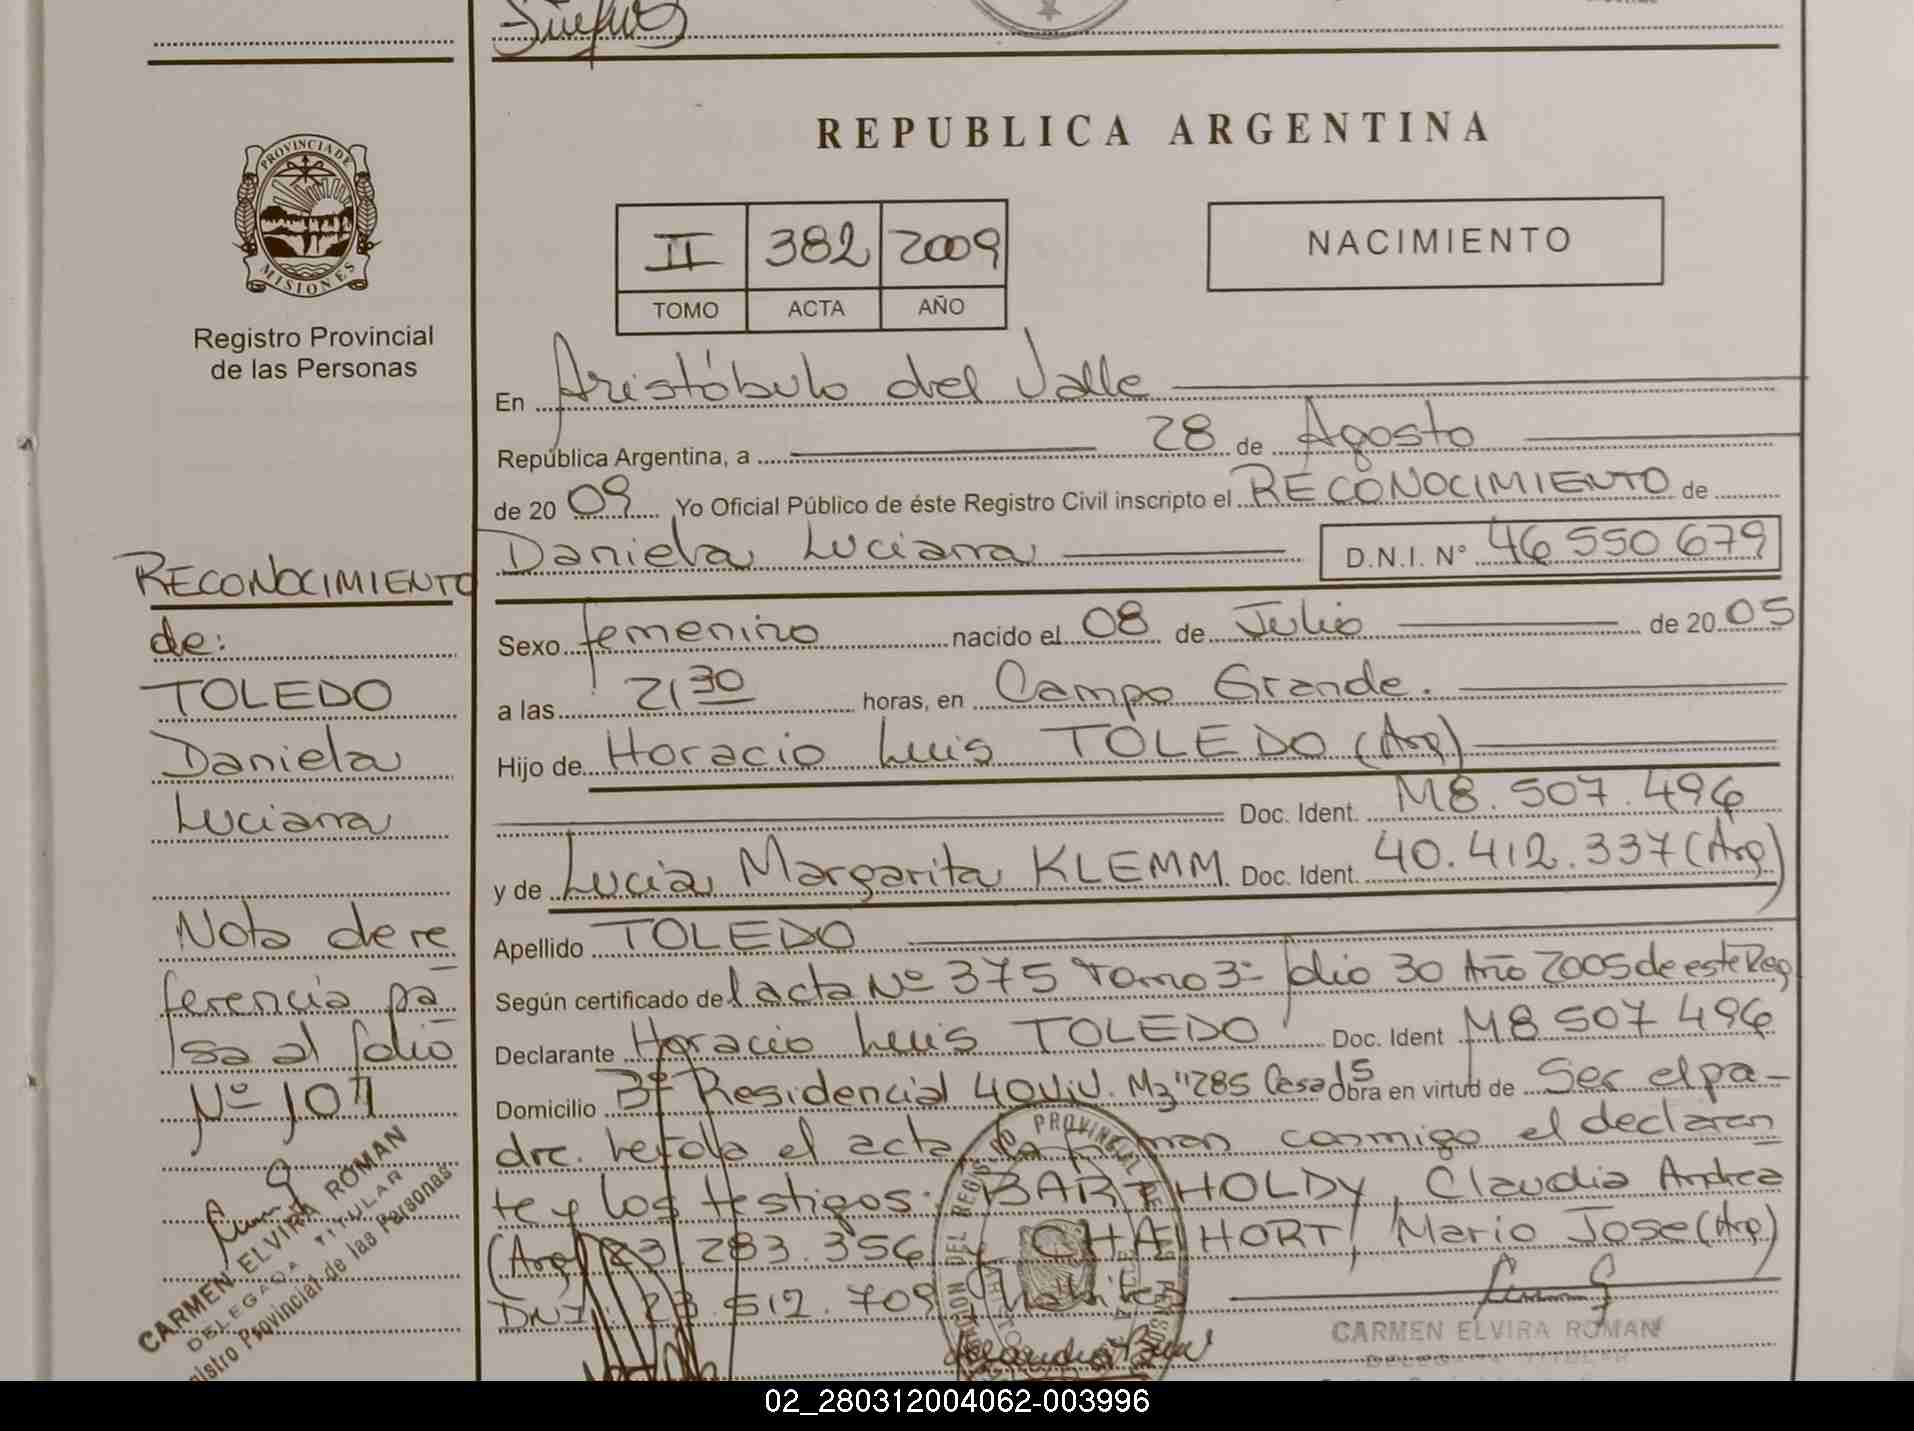 REPUBLICA ARGENTINA
PROVINCIA DE
MISIONES
Registro Provincial
de las Personas
II 382 2009
TOMO ACTA AÑO
NACIMIENTO
En Aristóbulo del Valle
República Argentina, a 28 de Agosto
de 2009 Yo Oficial Público de éste Registro Civil inscripto el RECONOCIMIENTO de
Daniela Luciana D.N.I. N° 46 550 679
Sexo femenino nacido el 08 de Julio de 2005
a las 21 30 horas, en Campo Grande.
Hijo de Horacio Luis TOLEDO (Arg)
Doc. Ident. M8.507.496
y de Lucia Margarita KLEMM Doc. Ident. 40.412.337 (Arg)
Apellido TOLEDO
Según certificado del acta Nº 375 Tomo 3º folio 30 Año 2005 de este Reg
Declarante Horacio Luis TOLEDO Doc. Ident M8 507 496
Domicilio Bº Residencial 40 Viv. Mz "285 Casa 15 Obra en virtud de Ser el pa-
dre. Leida el acta la firman conmigo el declaran
te y los testigos: BARTHOLDY, Claudia Andrea
(Arg) 23 283.356 y CHA HORT, Mario Jose (Arg)
DNI: 23.512.709
CARMEN ELVIRA ROMAN
DELEGADA TITULAR
RECONOCIMIENTO
de:
TOLEDO
Daniela
Luciana
Nota de re
ferencia pa
sa al folio
Nº 107
CARMEN ELVIRA ROMAN
DELEGADA TITULAR
Registro Provincial de las Personas
02_280312004062-003996